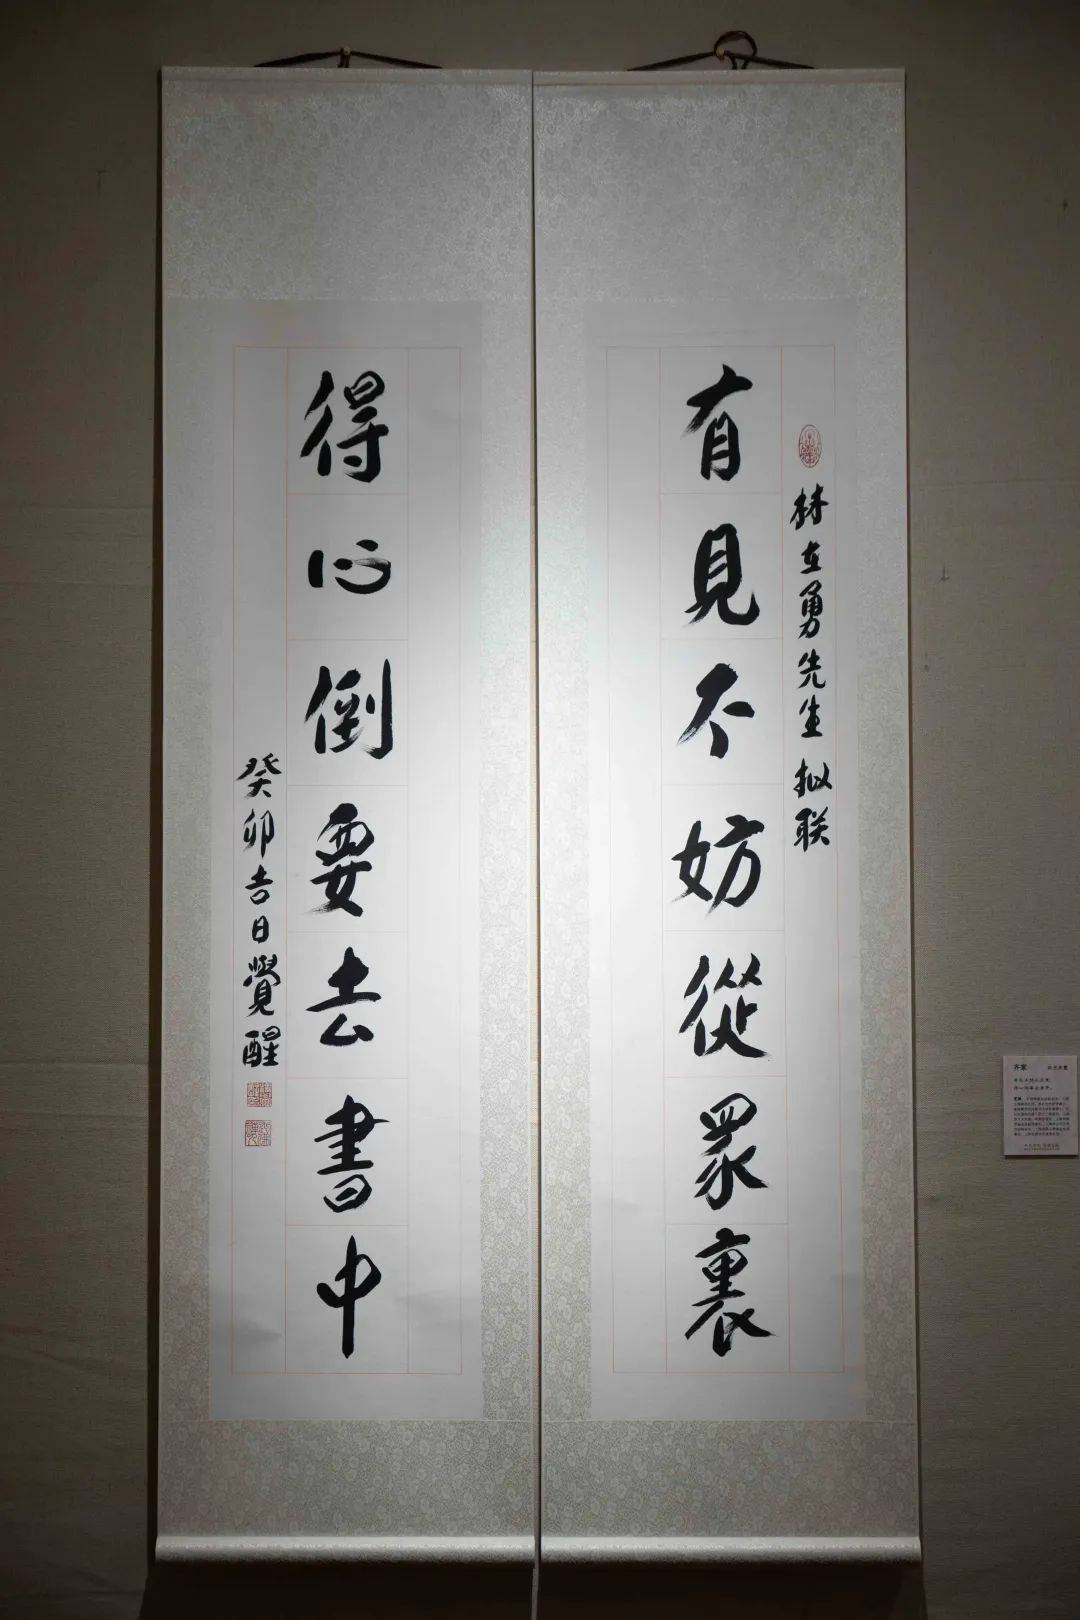 林在勇先生拟联
有見不妨從眾裏
得心倒要去書中
癸卯吉日覺醒